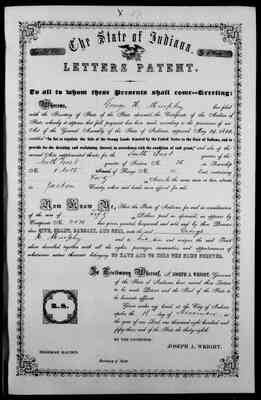 The State of Indiana.
LETTERS PATENT.
To all to whom these Presents shall come—Greeting:
Whereas, George H. Murphy has filed
with the Secretary of State of the State aforesaid, the Certificate of the Auditor of
State, whereby it appears that full payment has been made according to the provisions of an
Act of the General Assembly of the State of Indiana, approved May
entitled "An Act to regulate the Sale of the Swamp Lands donated by the United States to the State of Indiana, and to
provide for the draining and reclaiming thereof, in accordance with the condition of said grant," and also of the
several Acts supplemental thereto, for the South East quarter of the
quarter of Section No. in Township
No. North of Range No. containing
Forty Acres, be the same more or less, situate
in Jackson County, when said lands were offered for sale.
Now Know Ye, That the State of Indiana, in and for consideration
of the sum of Dollars paid as aforesaid, as appears by
Certificate No. has given, granted, bargained and sold, and by these Presents
does GIVE, GRANT, BARGAIN, AND SELL, unto the said George
H. Murphy and to heirs and assigns the said Tract
above described, together with all the rights, privileges, immunities and appurtenances of
whatsoever nature thereunto belonging, TO HAVE AND TO HOLD THE SAME FOREVER.
In Testimony Whereof, I, JOSEPH A. WRIGHT, Governor
of the State of Indiana, have caused these Letters
to be made Patent and the Seal of the State to
be hereunto affixed.
L. S.
Given under my hand, at the City of Indian-
apolis, the day of November in
the year of our Lord one thousand eight hundred and
fifty and of the State the thirty-eighth.
BY THE GOVERNOR.
JOSEPH A. WRIGHT.
Secretary of State.